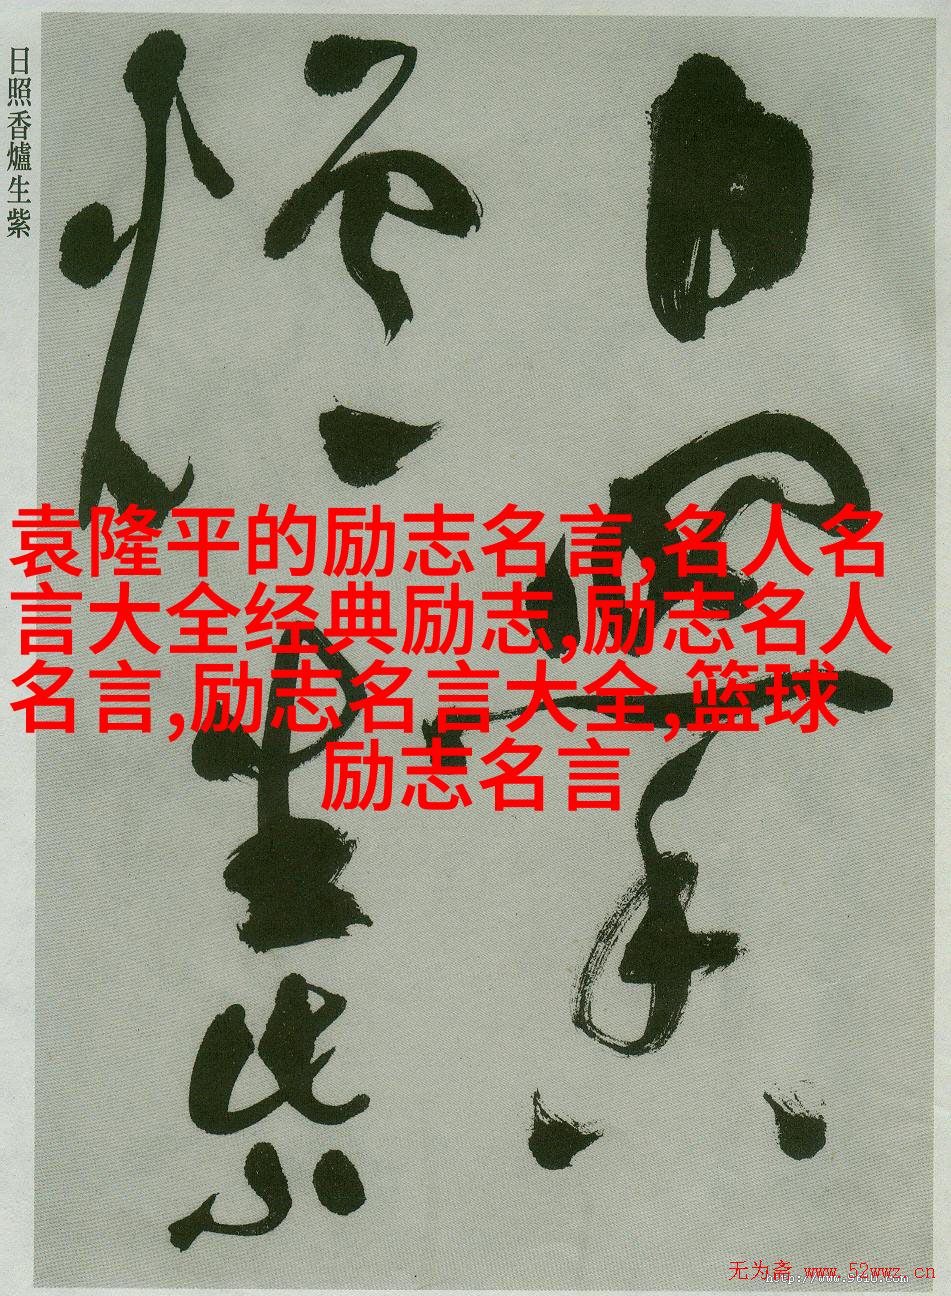 日照香爐生紫
日照香
爐生紫
袁隆平的励志名言,名人名
言大全经典励志,励志名人
名言,励志名言大全,篮球
励志名言
无为斋 www.52wwz.cn
http://www.9610.com